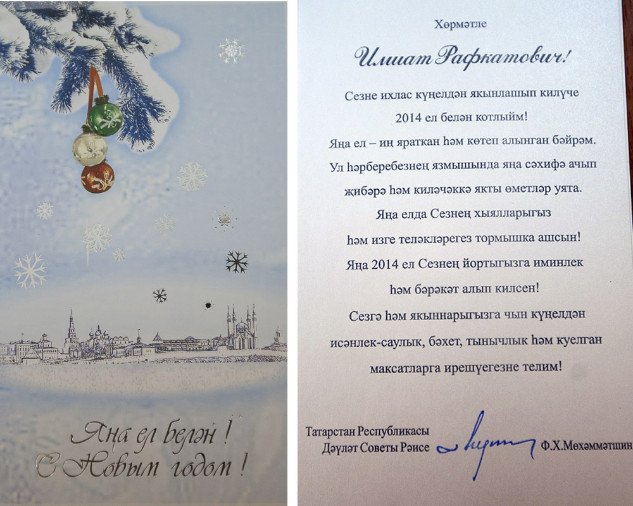 Яңа ел белән!
С Новым годом!
Хөрмәтле
Илшат Рафкатович!
Сезне ихлас күңелдән якынлашып килүче
2014 ел белән котлыйм!
Яңа ел – иң яраткан һәм көтеп алынган бәйрәм.
Ул һәрберебезнең язмышында яңа сәхифә ачып
җибәрә һәм киләчәккә якты өметләр уята.
Яңа елда Сезнең хыялларыгыз
һәм изге теләкләрегез тормышка ашсын!
Яңа 2014 ел Сезнең йортыгызга иминлек
һәм бәрәкәт алып килсен!
Сезгә һәм якыннарыгызга чын күңелдән
исәнлек-саулык, бәхет, тынычлык һәм куелган
максатларга ирешүегезне телим!
Татарстан Республикасы
Дәүләт Советы Рәисе
Ф.Х.Мөхәммәтшин